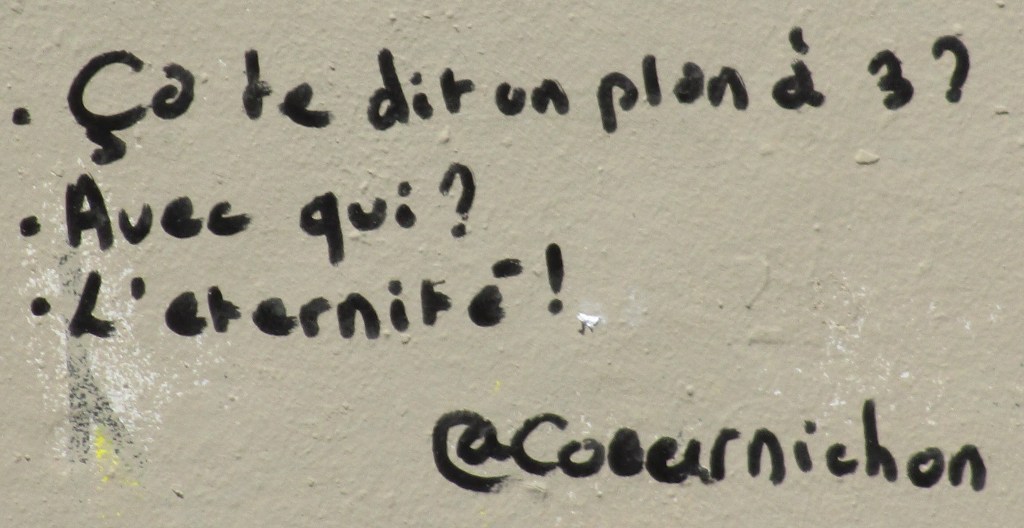 . Ça te dit un plan à 3 ?
. Avec qui ?
. L'eternité !
@Coeurnichon